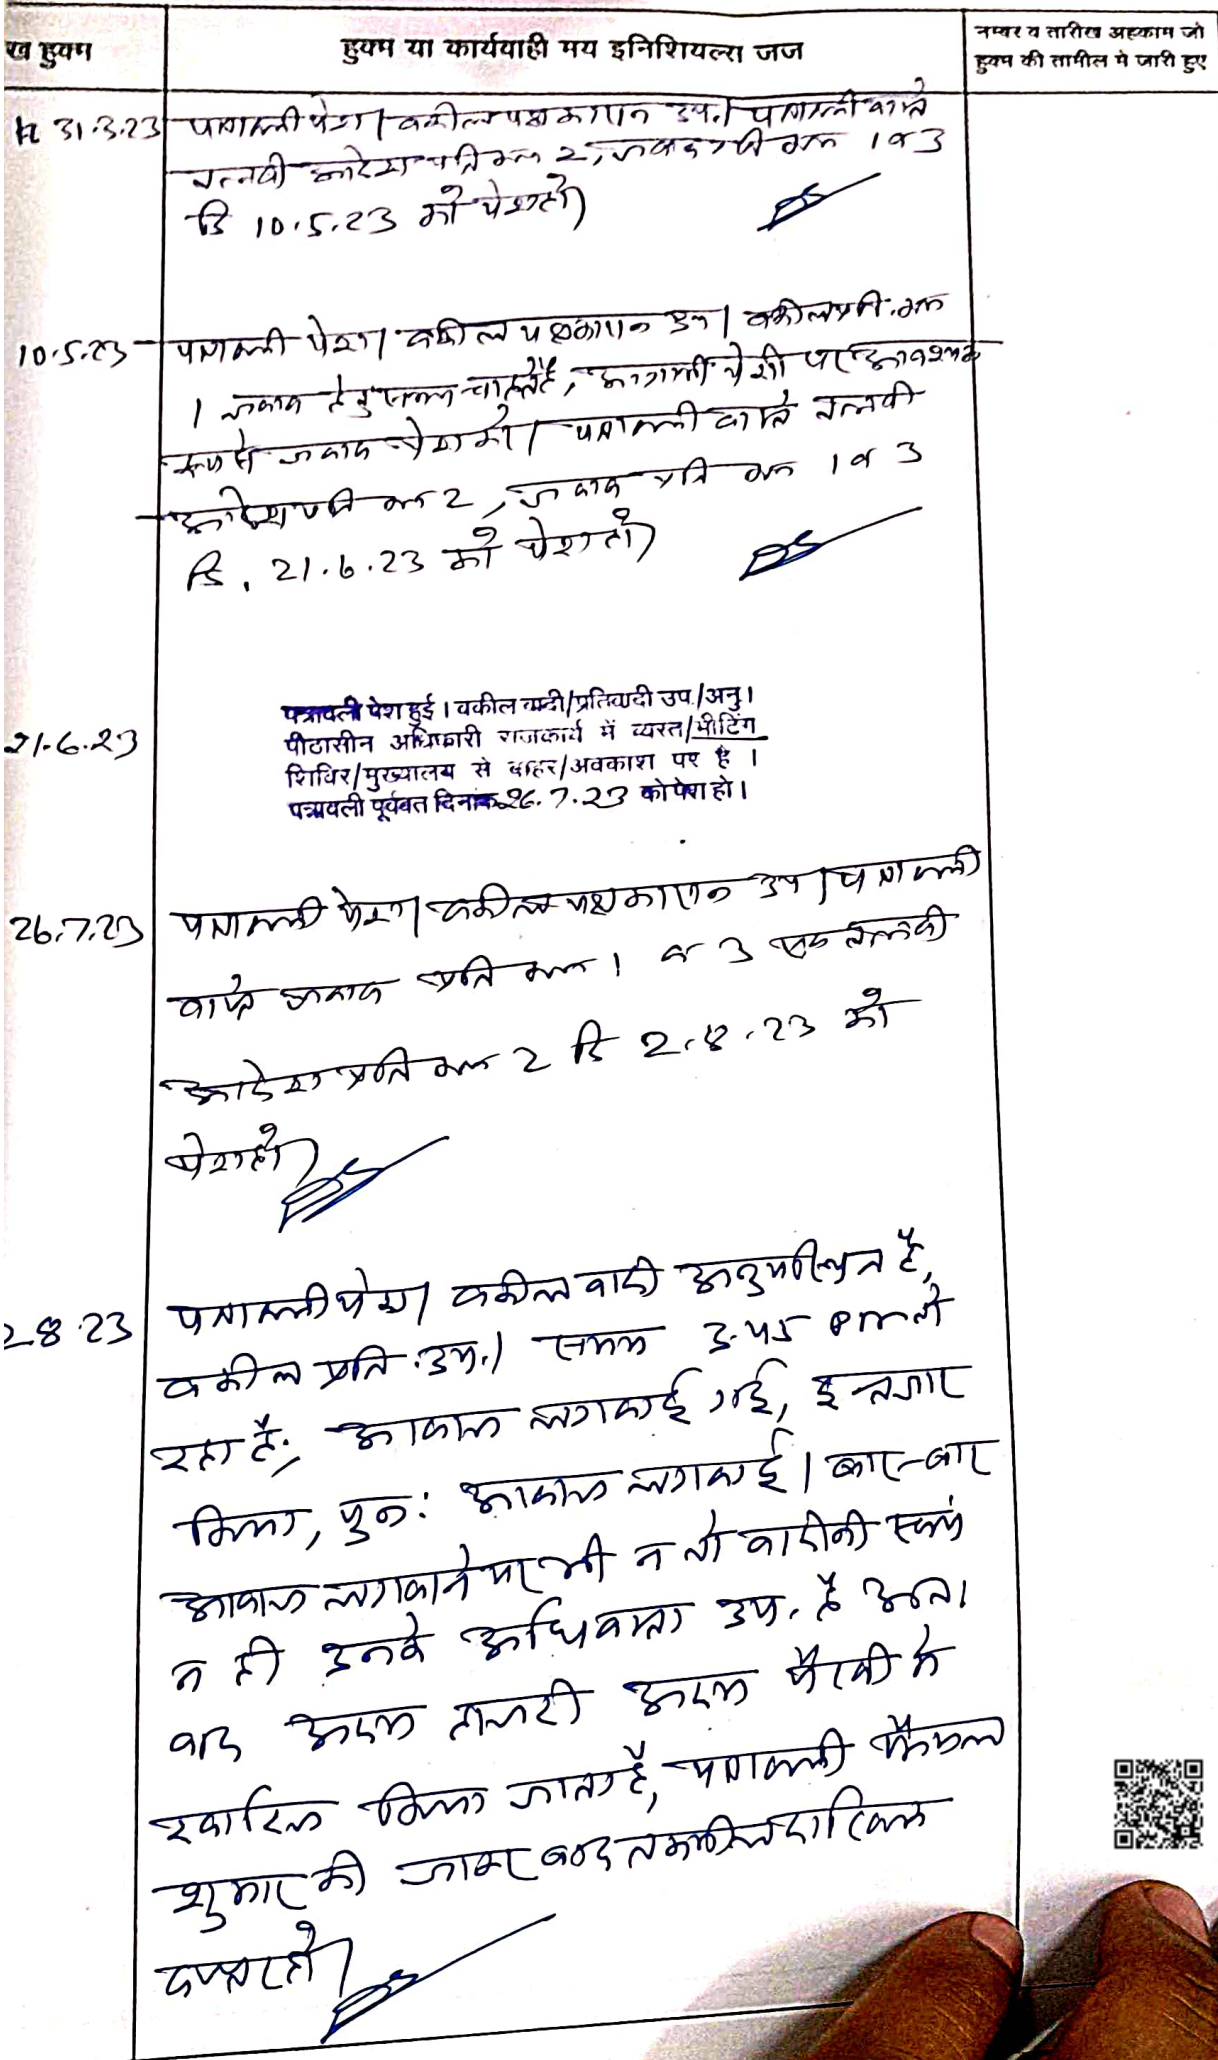 ख हुक्म
हुक्म या कार्यवाही मय इनिशियल्स जज
नम्बर व तारीख अहकाम जो
हुक्म की तामील में जारी हुए
31.3.23 पत्रावली पेश। वकील पक्षकारान उप.। पत्रावली वास्ते
तलबी आदेश प्रति सं. 2, जवाब प्रति सं. 1 व 3
दि 10.5.23 को पेश हो।
10.5.23 पत्रावली पेश। वकील पक्षकारान उप। वकील प्रति. सं.
1 जवाब हेतु समय चाहते है, आगामी पेशी पर आवश्यक
रूप से जवाब पेश करे। पत्रावली वास्ते तलबी
आदेश प्रति सं. 2, जवाब प्रति सं. 1 व 3
दि. 21.6.23 को पेश हो।
21.6.23
पत्रावली पेश हुई। वकील वादी/प्रतिवादी उप./अनु।
पीठासीन अधिकारी राजकार्य में व्यस्त/मीटिंग
शिविर/मुख्यालय से बाहर/अवकाश पर है ।
पत्रावली पूर्ववत दिनांक 26.7.23 को पेश हो।
26.7.23 पत्रावली पेश। वकील पक्षकारान उप। पत्रावली
वास्ते जवाब प्रति सं. 1 व 3 एवं तलबी
आदेश प्रति सं. 2 दि 2.8.23 को
पेश हो।
2.8.23 पत्रावली पेश। वकील वादी अनुपस्थित है,
वकील प्रति. उप.। समय 3.45 PM हो
रहा है, आवाज लगवाई गई, इन्तजार
किया, पुन: आवाज लगवाई। बार-बार
आवाज लगवाने पर भी न तो वादीनी स्वयं
न ही उनके अधिवक्ता उप. है अत।
वाद अदम हाजरी अदम पैरवी मे
खारिज किया जाता है, पत्रावली फैसल
शुमार की जाकर बाद तकमील दाखिल
दफ्तर हो।